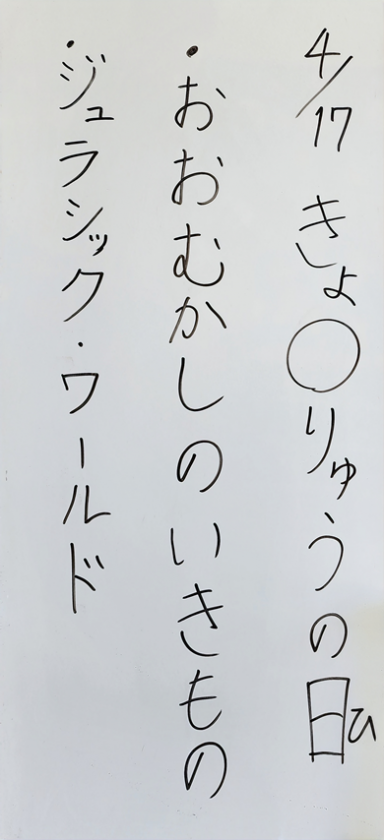 4/17 きょ〇りゅうの日ひ
・おおむかしのいきもの
・ジュラシック・ワールド